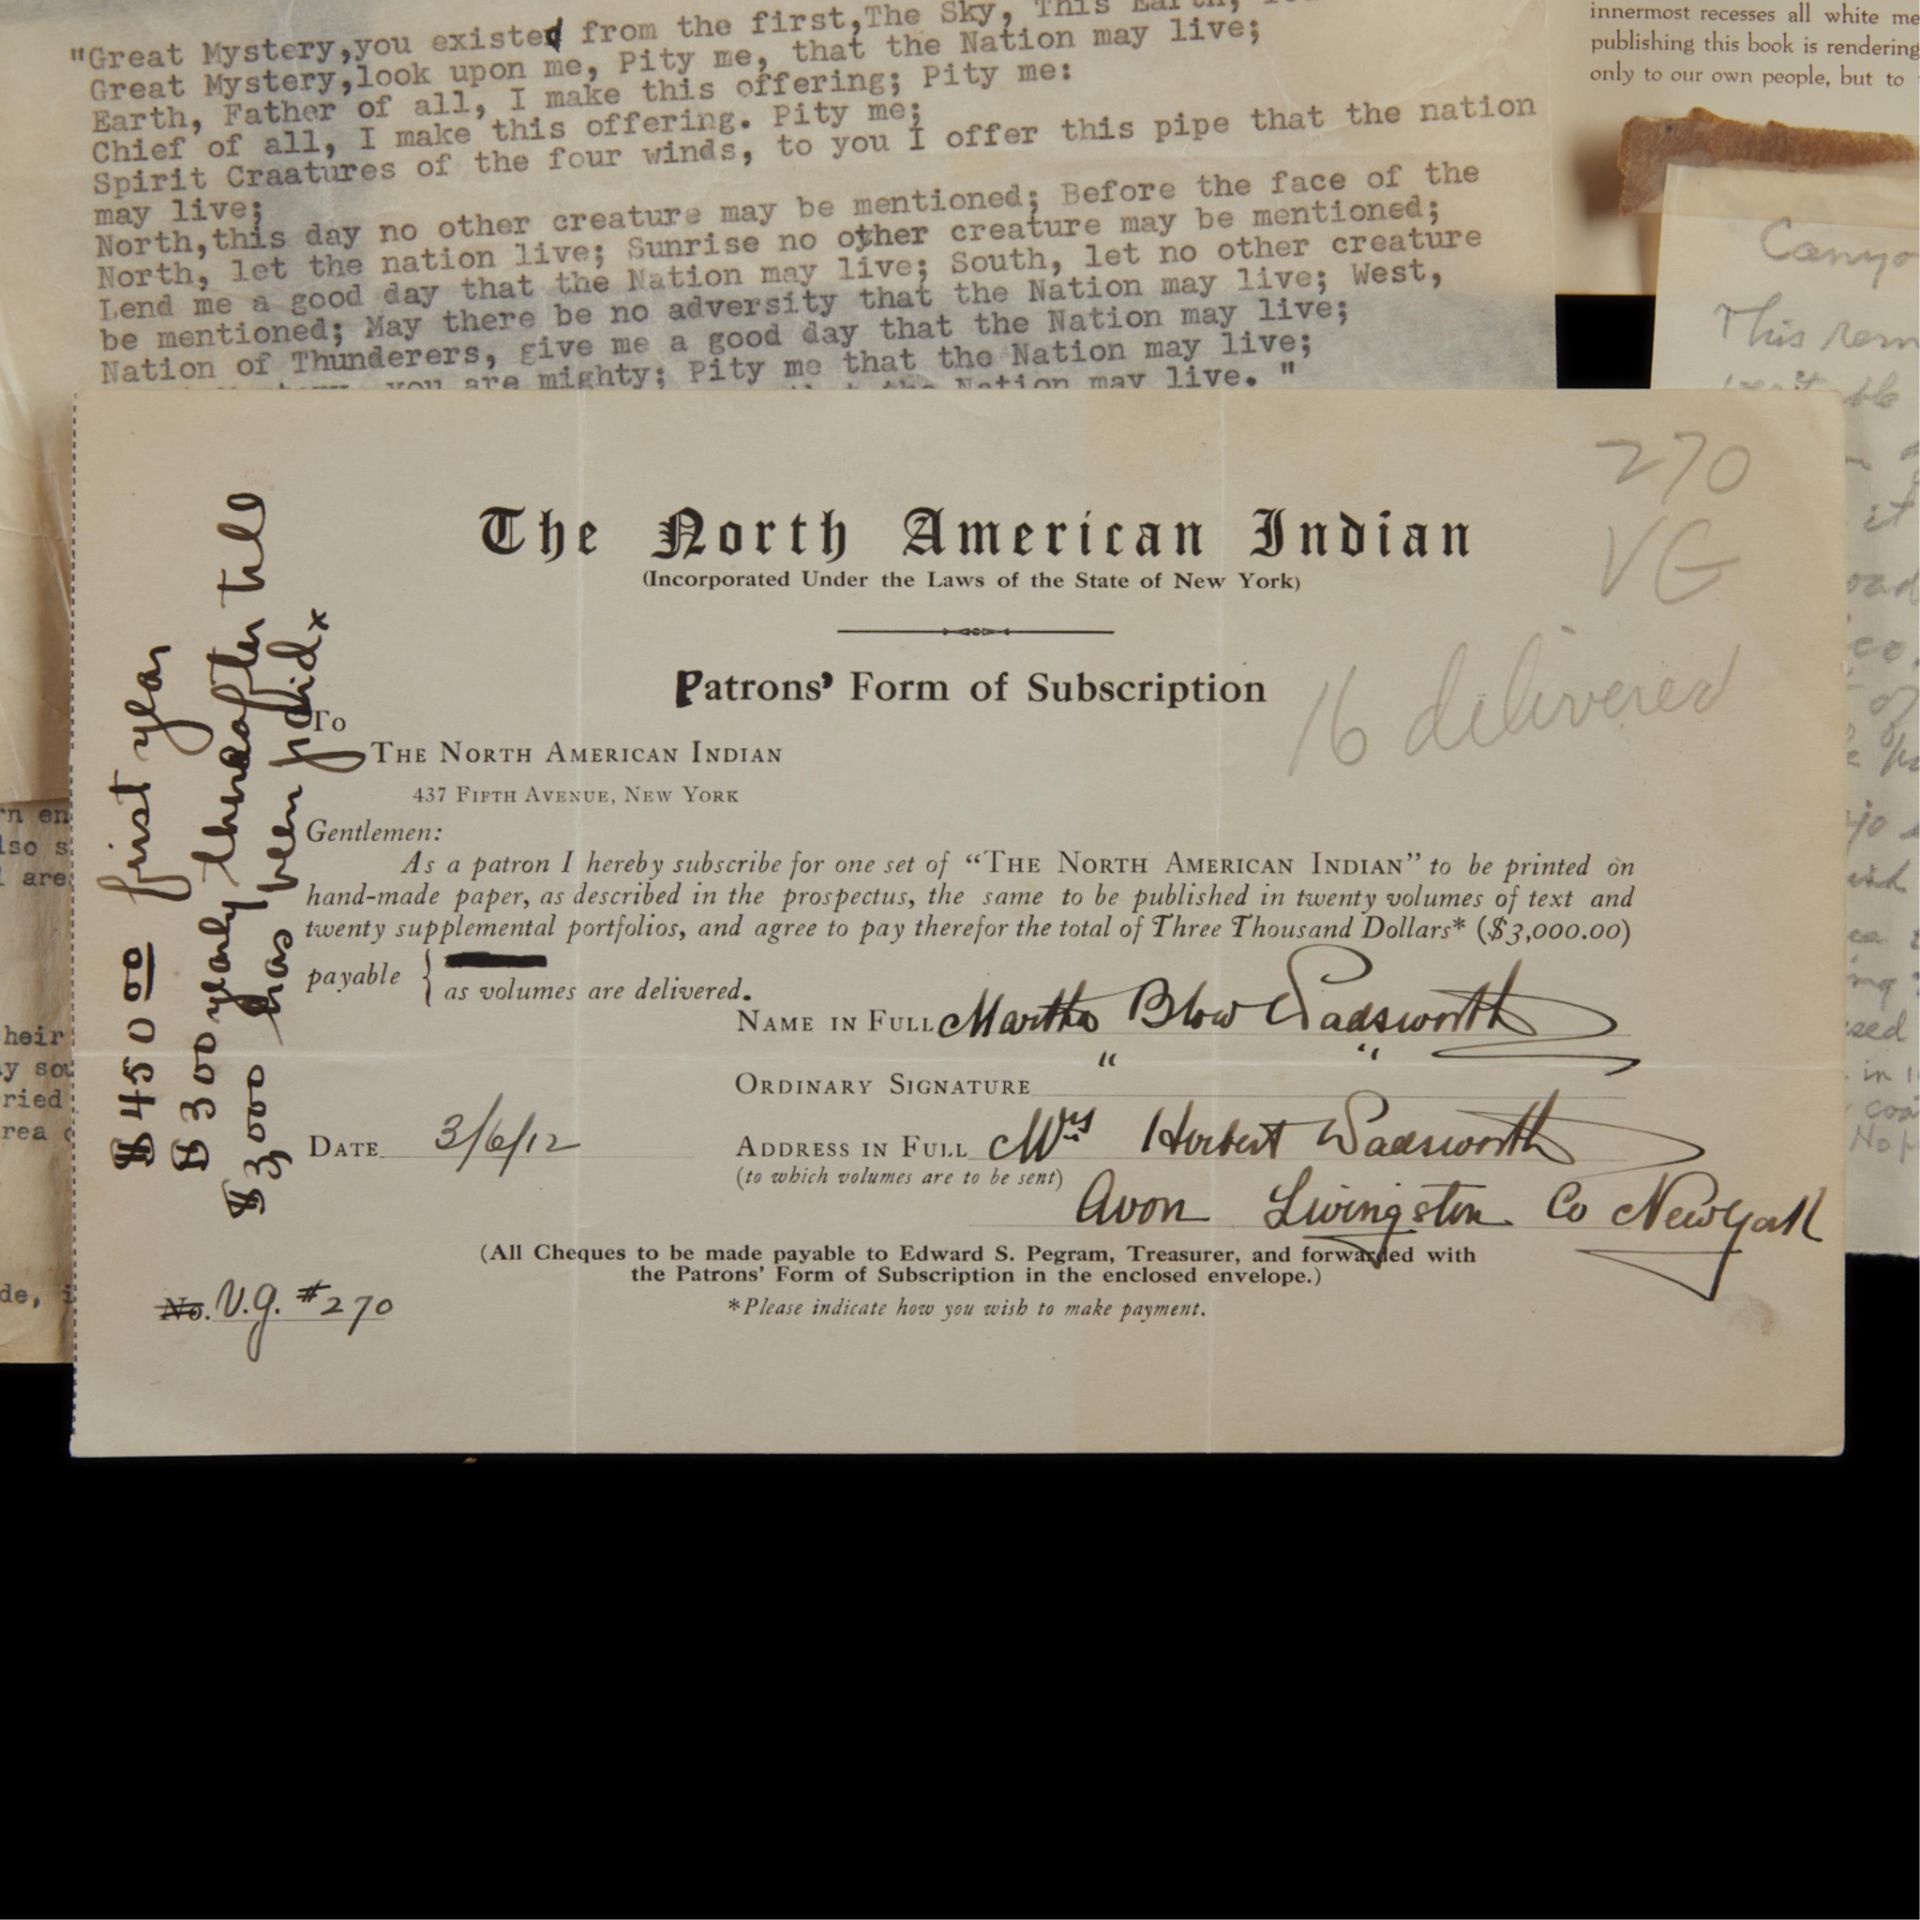 "Great Mystery,you existed from the first,The Sky, This
Great Mystery,look upon me, Pity me, that the Nation may live;
Earth, Father of all, I make this offering; Pity me:
Chief of all, I make this offering. Pity me;
Spirit Craatures of the four winds, to you I offer this pipe that the nation
may live;
North,this day no other creature may be mentioned; Before the face of the
North, let the nation live; Sunrise no other creature may be mentioned;
Lend me a good day that the Nation may live; South, let no other creature
be mentioned; May there be no adversity that the Nation may live; West,
Nation of Thunderers, give me a good day that the Nation may live;
you are mighty; Pity me that the Nation may live;
the Nation may live. "
innermost recesses all white me
publishing this book is rendering
only to our own people, but to
Canyo
This rem
it
270
VG
16 delivered
The North American Indian
(Incorporated Under the Laws of the State of New York)
Patrons' Form of Subscription
To
THE NORTH AMERICAN INDIAN
437 FIFTH AVENUE, NEW YORK
Gentlemen:
As a patron I hereby subscribe for one set of "THE NORTH AMERICAN INDIAN" to be printed on
hand-made paper, as described in the prospectus, the same to be published in twenty volumes of text and
twenty supplemental portfolios, and agree to pay therefor the total of Three Thousand Dollars* ($3,000.00)
payable {
as volumes are delivered.
NAME IN FULL Martha Blow Wadsworth
ORDINARY SIGNATURE " "
DATE 3/6/12
ADDRESS IN FULL Mrs Herbert Wadsworth
(to which volumes are to be sent)
Avon Livingston Co New York
(All Cheques to be made payable to Edward S. Pegram, Treasurer, and forwarded with
the Patrons' Form of Subscription in the enclosed envelope.)
*Please indicate how you wish to make payment.
No. V.G. #270
$450 00 first year
$300 yearly thereafter till
$3,000 has been paid x
rn en
lso s
are
heir
y sou
ried
rea
de, i